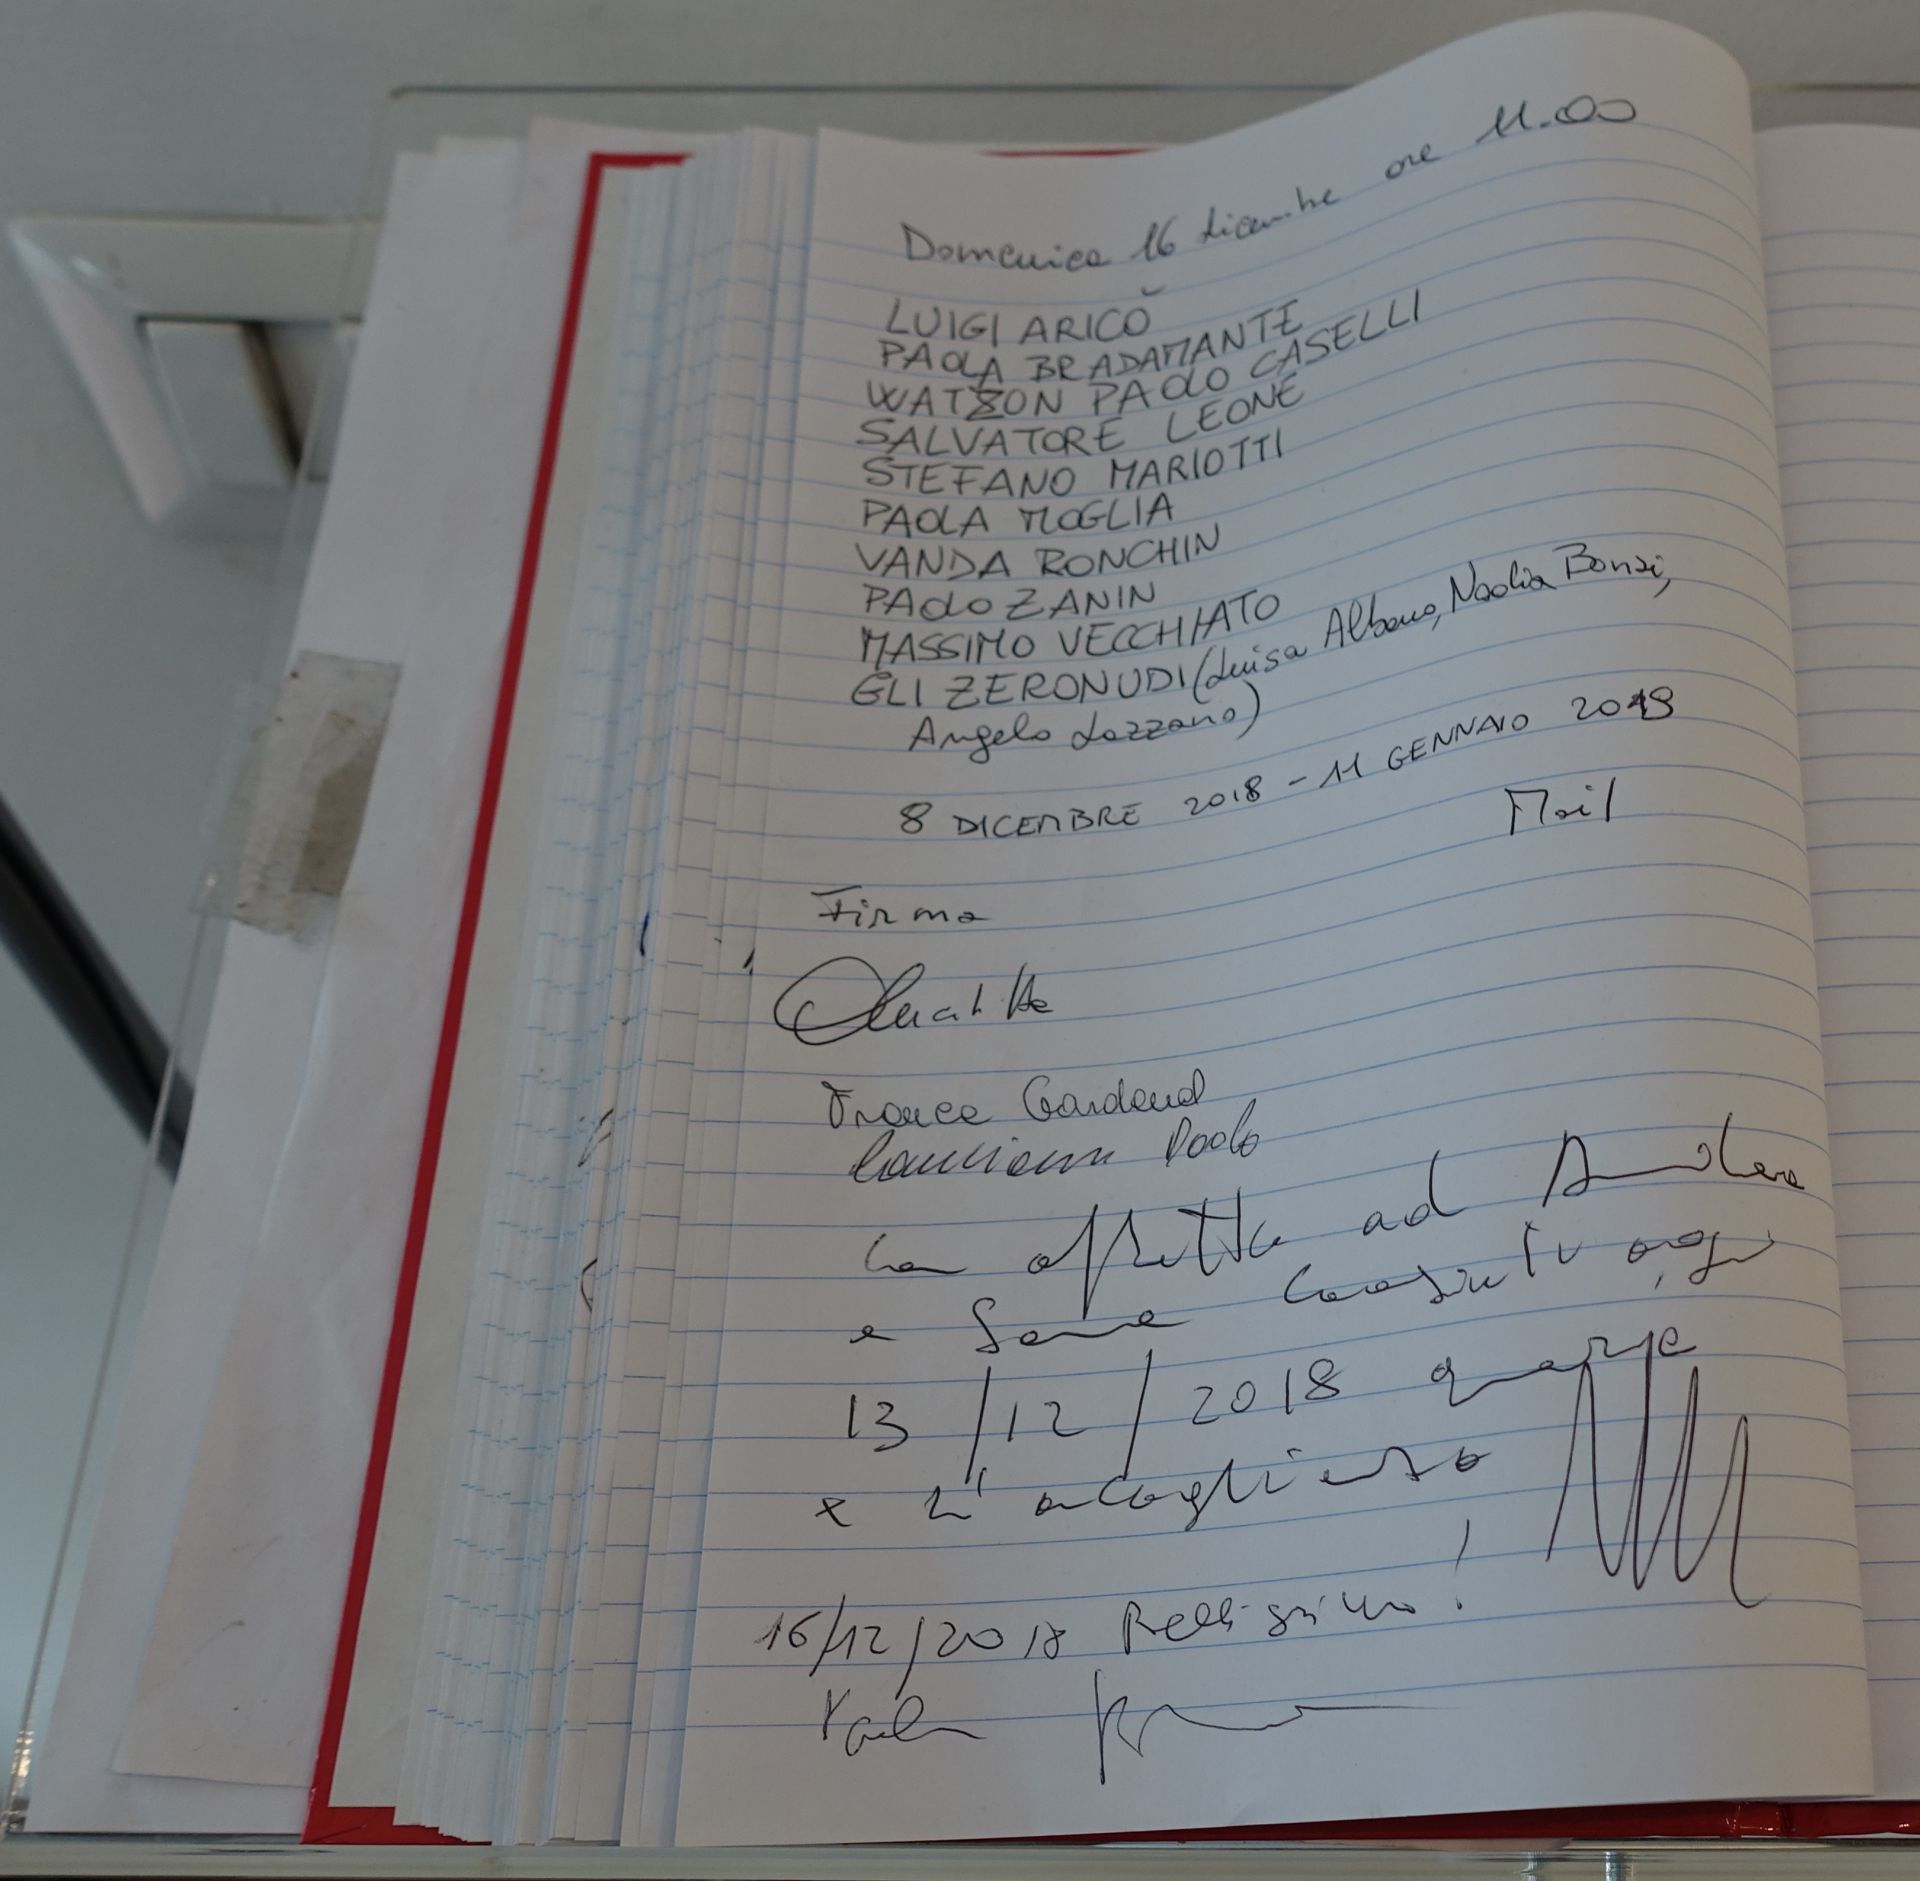 Domenica 16 dicembre ore 11.00
LUIGI ARICÒ
PAOLA BRADAMANTE
WATSON PAOLO CASELLI
SALVATORE LEONE
STEFANO MARIOTTI
PAOLA MOGLIA
VANDA RONCHIN
PAOLO ZANIN
MASSIMO VECCHIATO
GLI ZERONUDI (Luisa Albano, Nadia Bonsi,
Angelo Lazzano)
8 DICEMBRE 2018 - 11 GENNAIO 2019
Firma Mail
Franca
Paolo
Con affetto ad
e
13/12/2018 grazie
x l'accoglienza
16/12/2018 Bellissimo!